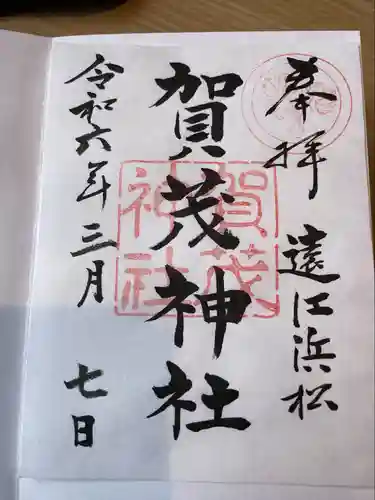 奉拝 遠江浜松
賀茂神社
賀茂神社
令和六年三月七日